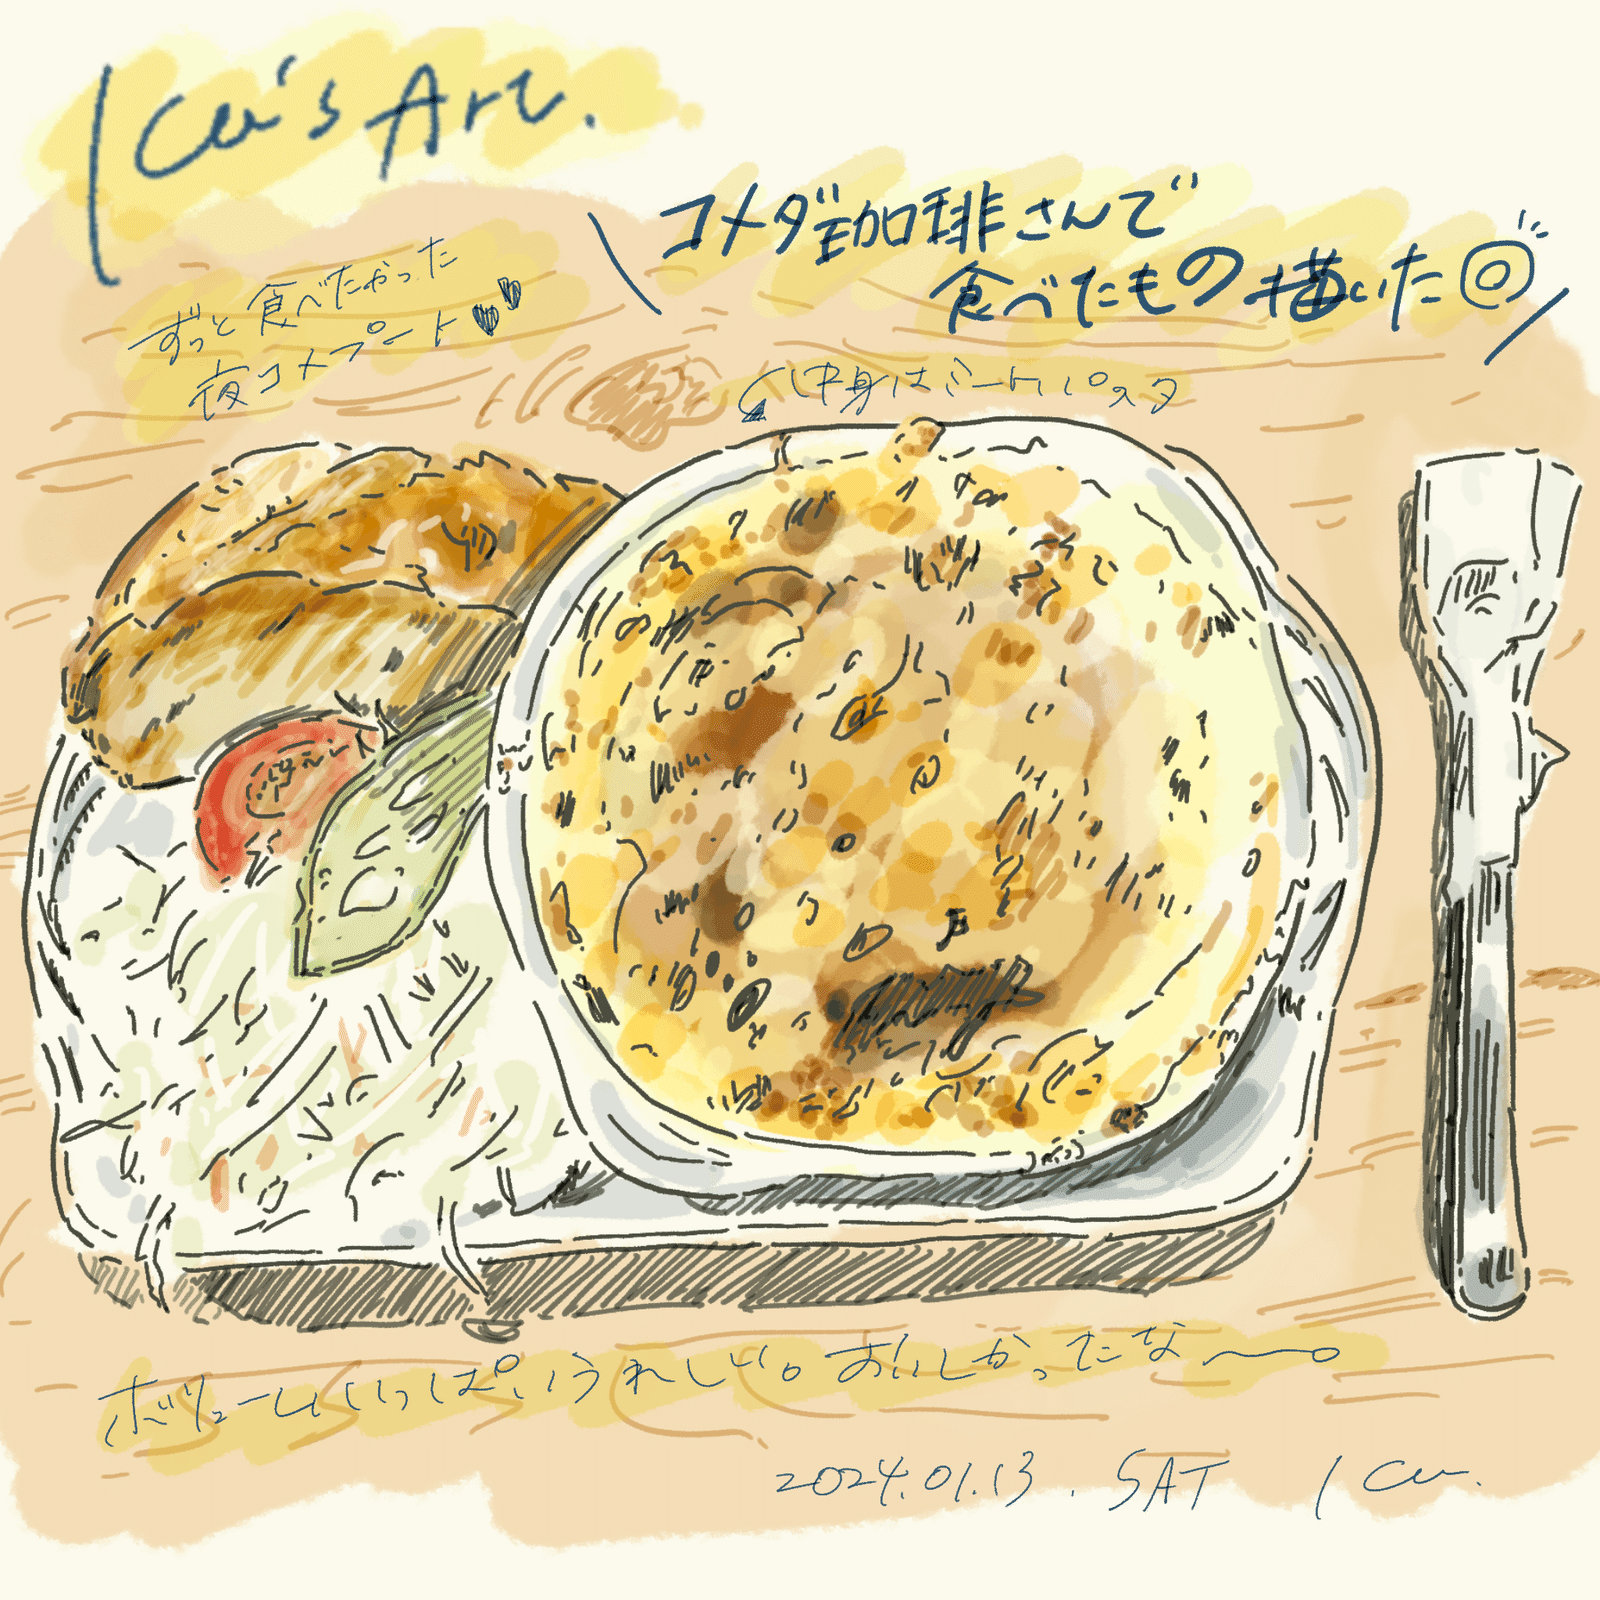 Icu's Art.
コメダ珈琲さんで
食べたもの描いた◎
ずっと食べたかった
夜コメプレート♥♥
中身はミートパスタ
ボリュームいっぱいうれしい。おいしかったな〜。
2024.01.13. SAT Icu.